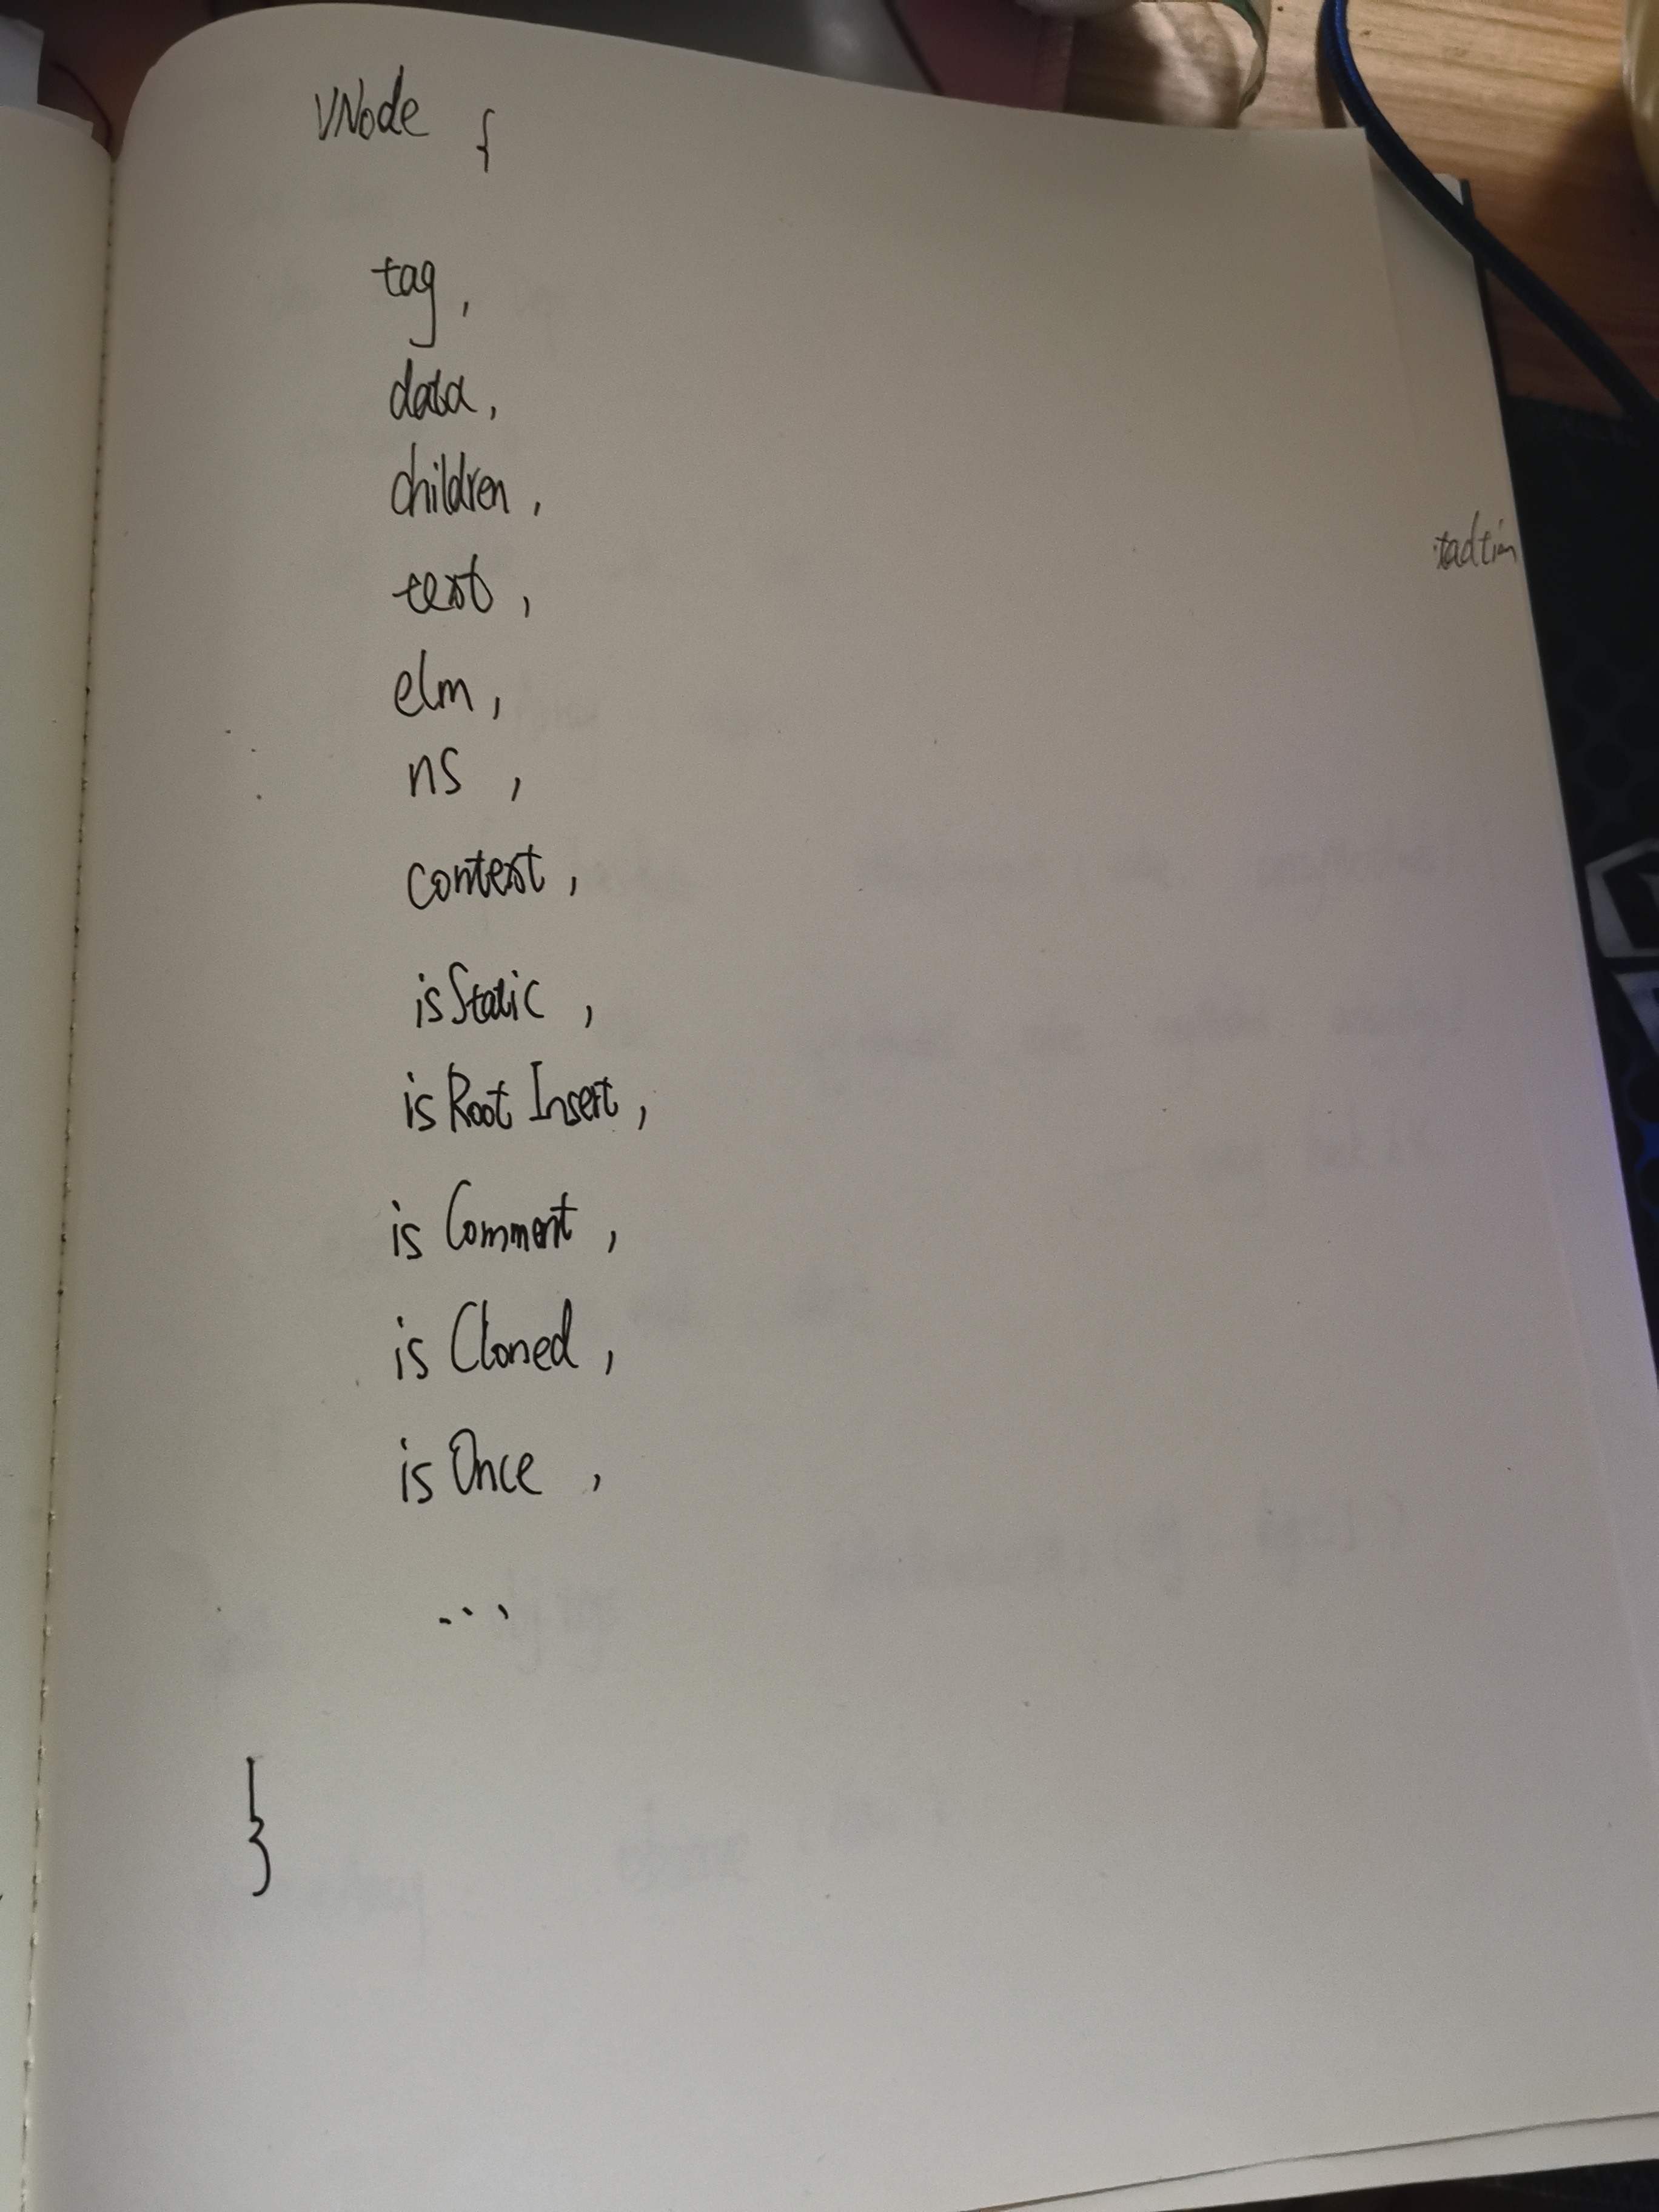 VNode {
tag,
data,
children,
text,
elm,
ns,
context,
isStatic,
isRoot Insert,
is Comment,
is Cloned,
is Once,
...
}